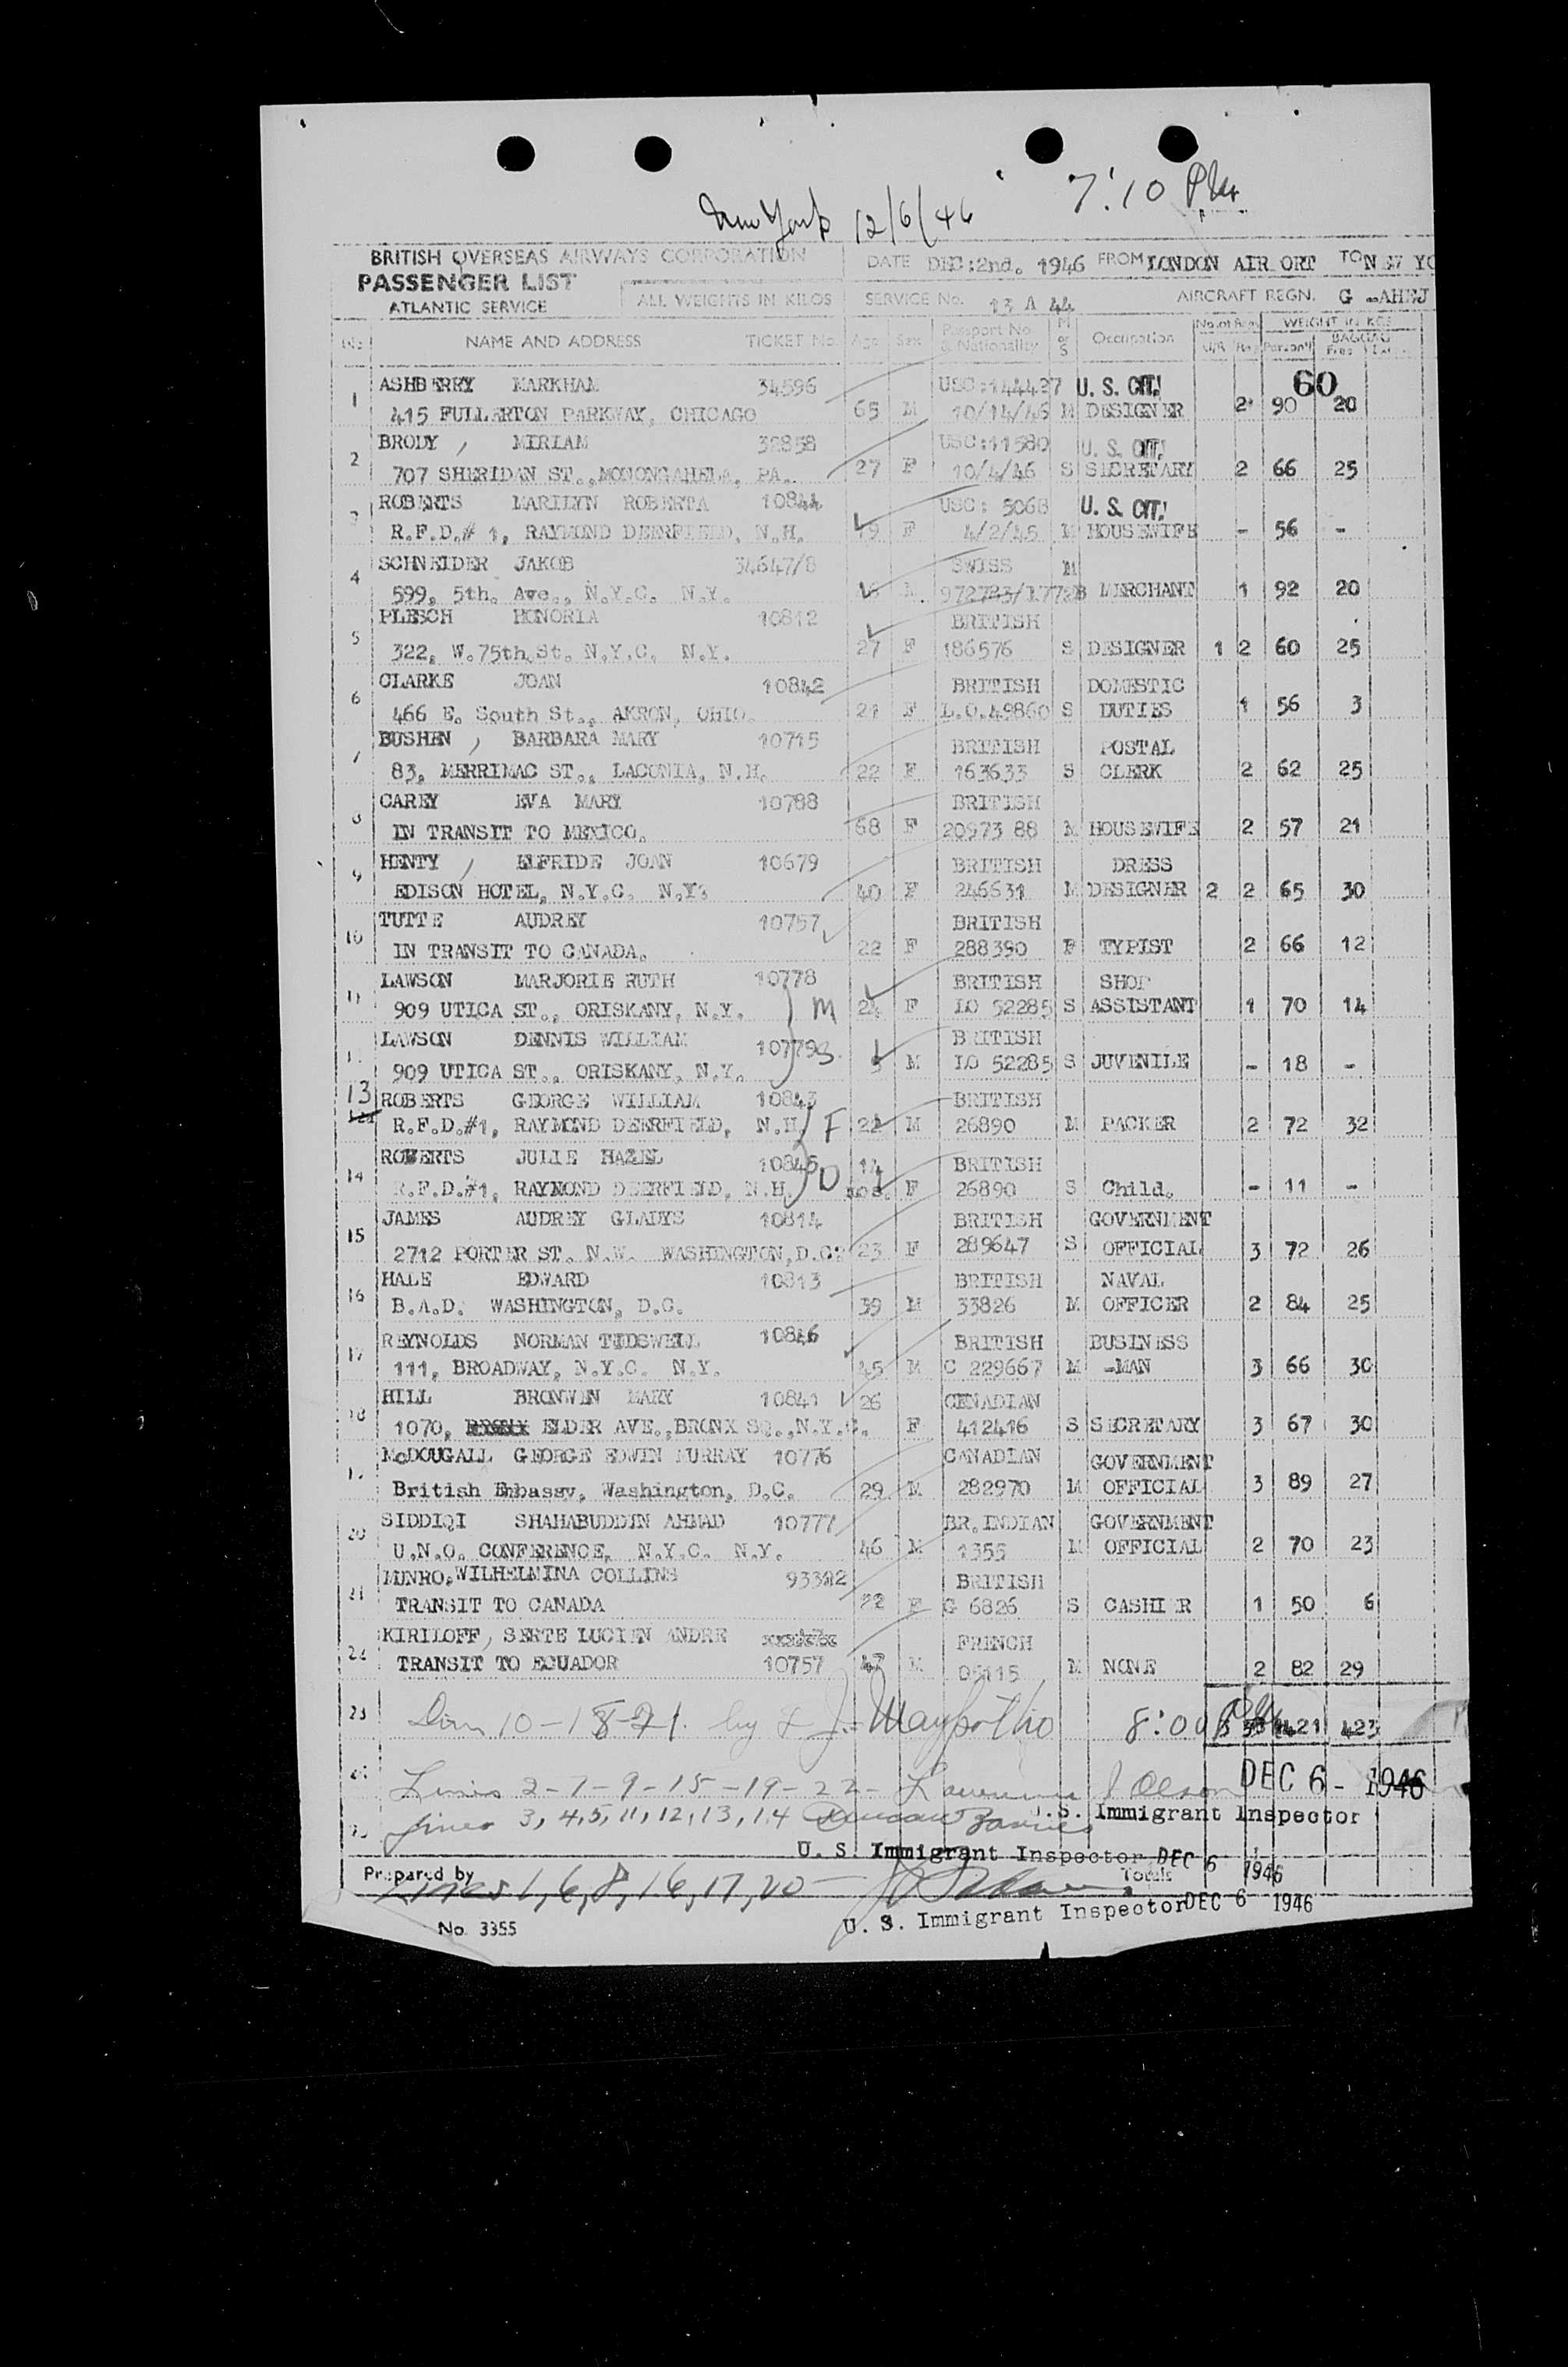 New York 12/6/46 7:10 PM
BRITISH OVERSEAS AIRWAYS CORPORATION DATE DEC:2nd. 1946 FROM LONDON AIR ORT TO NEW YO
PASSENGER LIST
ATLANTIC SERVICE ALL WEIGHTS IN KILOS SERVICE No. 13 A 44 AIRCRAFT REGN. G -AHEJ
NAME AND ADDRESS TICKET No. Age Sex Passport No. & Nationality M or S Occupation No. of Bags WEIGHT IN KGS
Person'l BAGGAG Free
1 ASHBERRY MARKHAM 34596 USC:144427 U. S. CIT. 60
415 FULLERTON PARKWAY, CHICAGO 65 M 10/14/46 M DESIGNER 2 90 20
2 BRODY, MIRIAM 32858 USC:11580 U. S. CIT.
707 SHERIDAN ST., MONONGAHELA, PA. 27 F 10/4/46 S SECRETARY 2 66 25
3 ROBERTS MARILYN ROBERTA 10844 USC: 5068 U. S. CIT.
R.F.D.# 1, RAYMOND DEERFIELD, N.H. 19 F 4/2/45 M HOUSEWIFE - 56 -
4 SCHNEIDER JAKOB 34647/8 SWISS M
599, 5th. Ave., N.Y.C. N.Y. MERCHANT 1 92 20
5 PLESCH HONORIA 10812 BRITISH
322, W.75th.St. N.Y.C. N.Y. 27 F 186576 S DESIGNER 1 2 60 25
6 CLARKE JOAN 10842 BRITISH DOMESTIC
466 E. South St., AKRON, OHIO. 21 F L.O.49860 S DUTIES 1 56 3
7 BUSHEN, BARBARA MARY 10715 BRITISH POSTAL
83, MERRIMAC ST., LACONIA, N.H. 22 F 163633 S CLERK 2 62 25
8 CAREY EVA MARY 10788 BRITISH
IN TRANSIT TO MEXICO. 68 F 20973 88 M HOUSEWIFE 2 57 21
9 HENTY, ELFRIDE JOAN 10679 BRITISH DRESS
EDISON HOTEL, N.Y.C. N.Y. 40 F 246631 M DESIGNER 2 2 65 30
10 TUTTE AUDREY 10757 BRITISH
IN TRANSIT TO CANADA. 22 F 288390 F TYPIST 2 66 12
11 LAWSON MARJORIE RUTH 10778 BRITISH SHOP
909 UTICA ST., ORISKANY, N.Y. M 24 F LO 52285 S ASSISTANT 1 70 14
LAWSON DENNIS WILLIAM 10779 BRITISH
909 UTICA ST., ORISKANY, N.Y. M LO 52285 S JUVENILE - 18 -
13 ROBERTS GEORGE WILLIAM 10843 BRITISH
R.F.D.#1, RAYMOND DEERFIELD, N.H. F 22 M 26890 M PACKER 2 72 32
14 ROBERTS JULIE HAZEL 10845 11 BRITISH
R.F.D.#1, RAYMOND DEERFIELD, N.H. D mos. F 26890 S Child. - 11 -
15 JAMES AUDREY GLADYS 10814 BRITISH GOVERNMENT
2712 PORTER ST. N.W. WASHINGTON, D.C. 23 F 289647 S OFFICIAL 3 72 26
16 HALE EDWARD 10813 BRITISH NAVAL
B.A.D. WASHINGTON, D.C. 39 M 33826 M OFFICER 2 84 25
17 REYNOLDS NORMAN TIDSWELL 10846 BRITISH BUSINESS
111, BROADWAY, N.Y.C. N.Y. 45 M C 229667 M -MAN 3 66 30
18 HILL BRONWEN MARY 10841 26 CENADIAN
1070, ELDER AVE., BRONX SQ., N.Y.C. F 412416 S SECRETARY 3 67 30
19 McDOUGALL GEORGE EDWIN MURRAY 10776 CANADIAN GOVERNMENT
British Embassy, Washington, D.C. 29 M 282970 M OFFICIAL 3 89 27
20 SIDDIQI SHAHABUDDIN AHMAD 10777 BR.INDIAN GOVERNMENT
U.N.O. CONFERENCE, N.Y.C. N.Y. 46 M 1355 M OFFICIAL 2 70 23
21 MUNRO, WILHELMINA COLLINS 93322 BRITISH
TRANSIT TO CANADA 22 F G 6826 S CASHIER 1 50 6
22 KIRILOFF, SERTE LUCIEN ANDRE FRENCH
TRANSIT TO ECUADOR 10757 47 M 05115 M NONE 2 82 29
23 10-18-21 by 8:00 PM 423
Lines 2-7-9-15-19-22- Olson DEC 6 - 1946
U.S. Immigrant Inspector
Lines 3, 4, 5, 11, 12, 13, 14
U. S. Immigrant Inspector DEC 6 1946
Prepared by Lines 1, 6, 8, 16, 17, 20 Totals
No. 3355 U. S. Immigrant Inspector DEC 6 1946